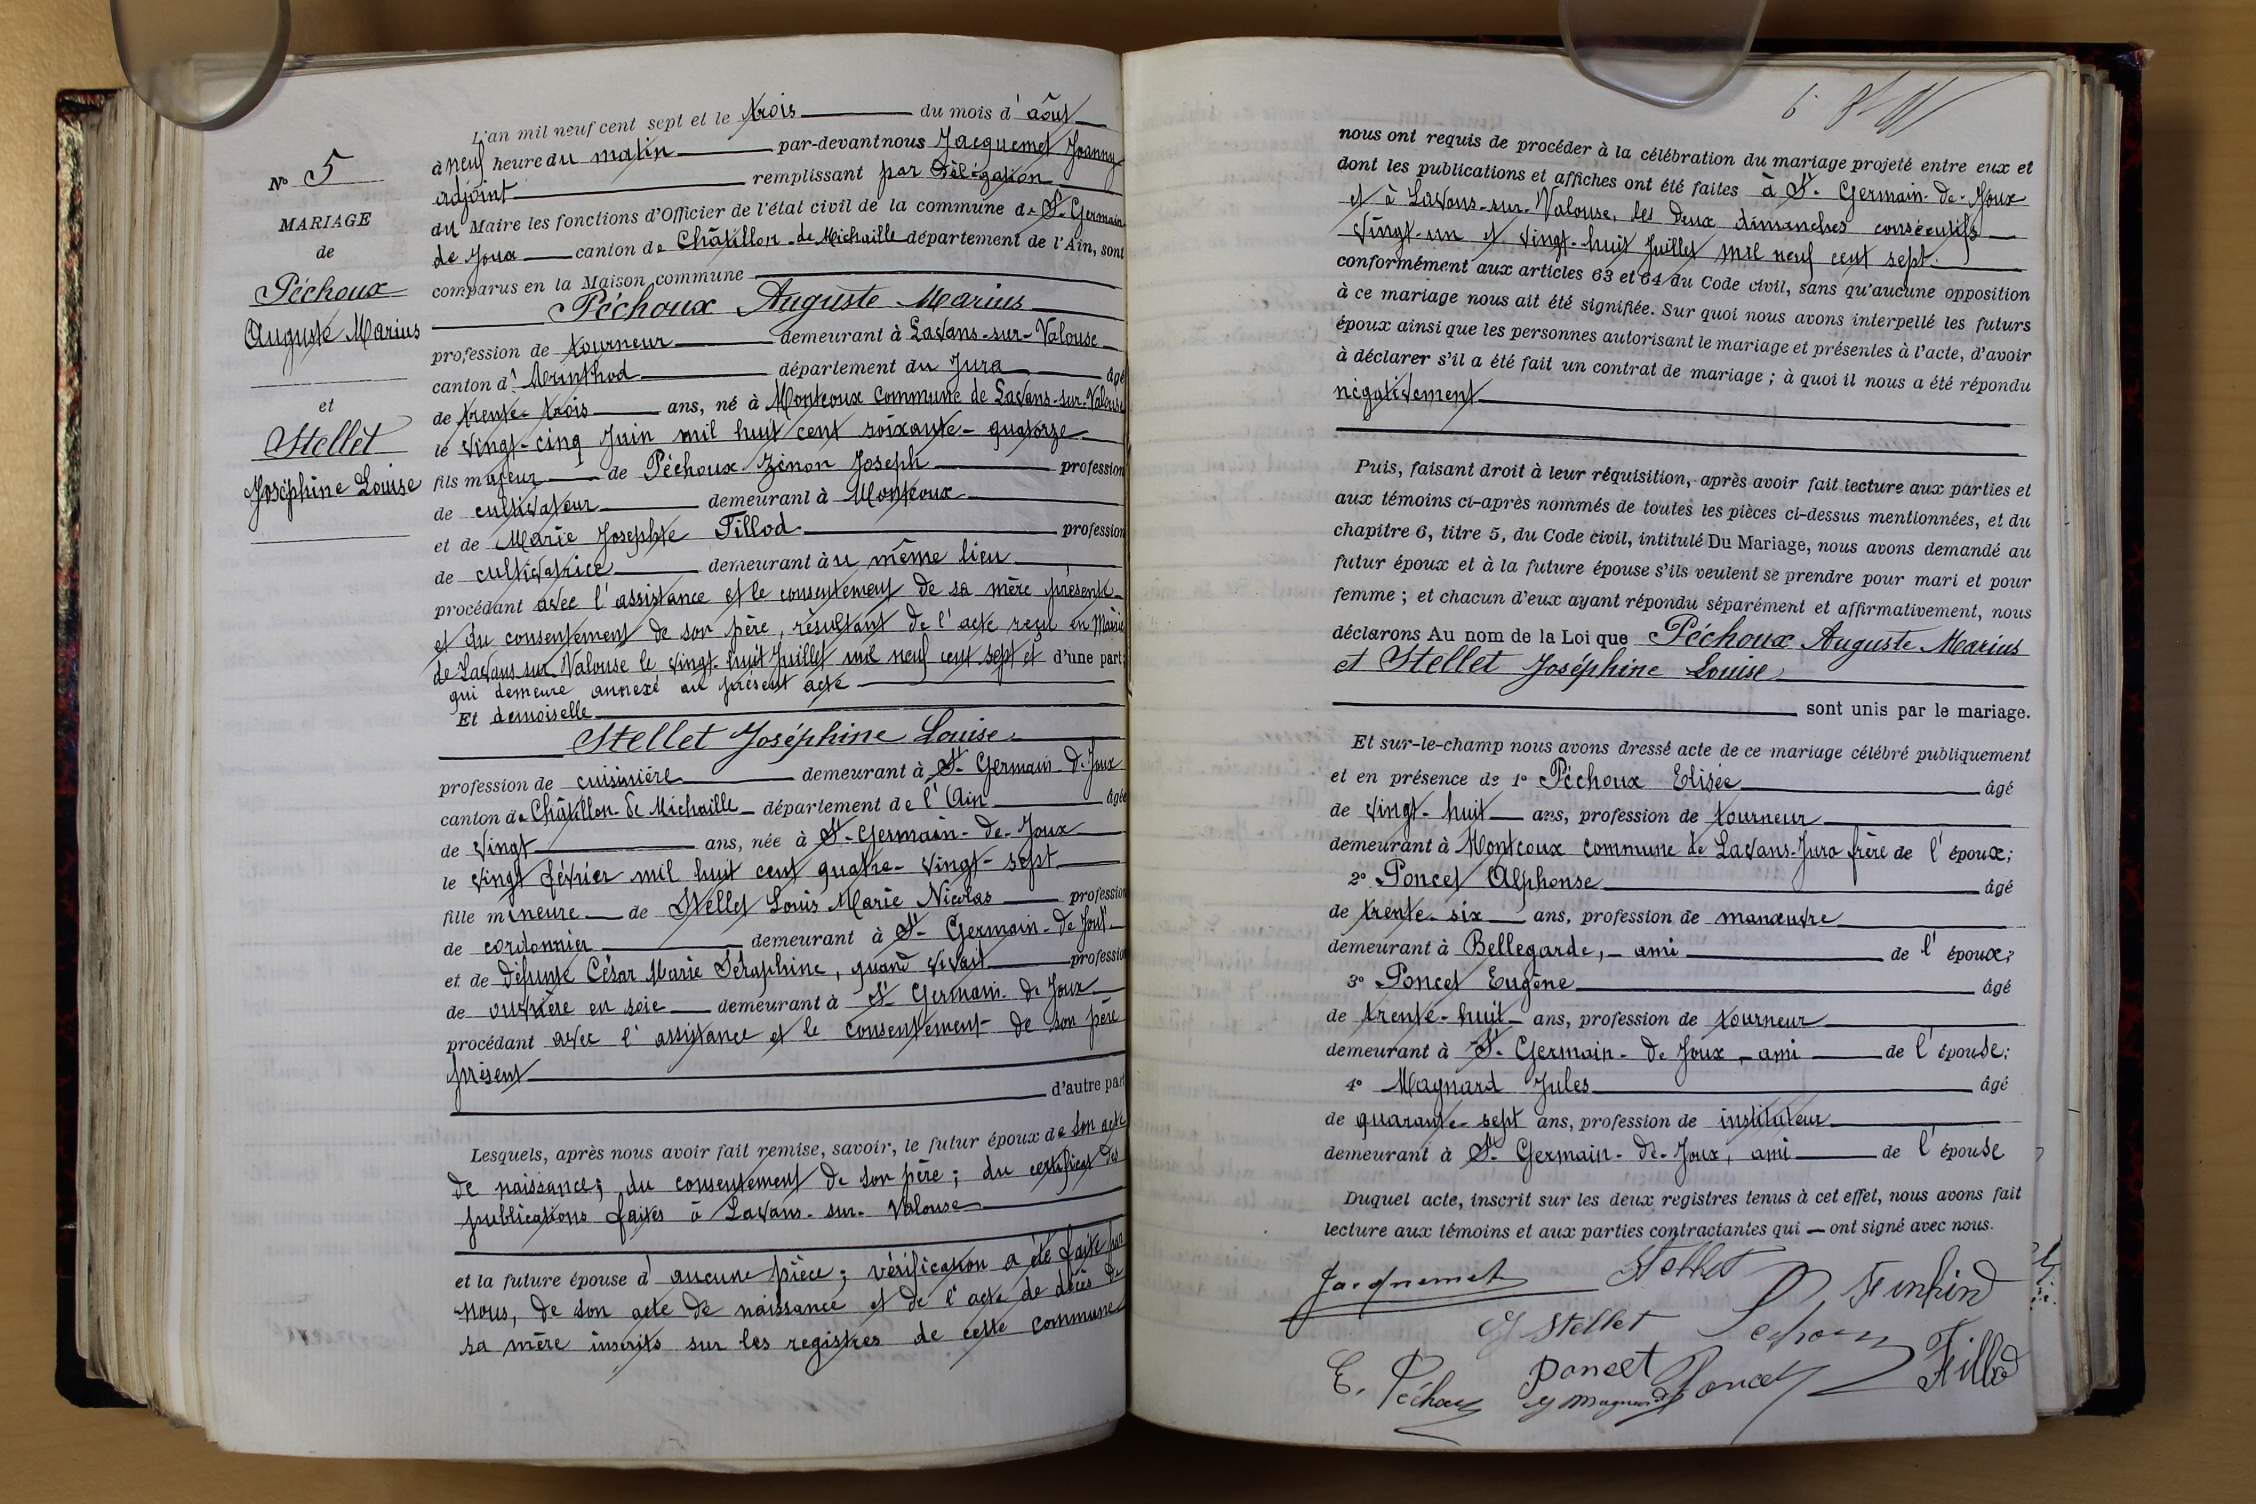 N° 5
MARIAGE
de
Péchoux
Auguste Marius
et
Stellet
Joséphine Louise
L'an mil neuf cent sept et le trois du mois d'août
à neuf heure du matin par-devant nous Jacquemet Joanny
adjoint remplissant par délégation
du Maire les fonctions d'Officier de l'état civil de la commune de St-Germain
de Joux canton de Châtillon-de-Michaille département de l'Ain, sont
comparus en la Maison commune
Péchoux Auguste Marius
profession de tourneur demeurant à Lavans-sur-Valouse
canton d'Arinthod département du Jura âgé
de trente-trois ans, né à Montcoux commune de Lavans-sur-Valouse
le vingt-cinq Juin mil huit cent soixante-quatorze
fils majeur de Péchoux Zénon Joseph profession
de cultivateur demeurant à Montcoux
et de Marie Josephte Fillod profession
de cultivatrice demeurant au même lieu
procédant avec l'assistance et le consentement de sa mère présente
et du consentement de son père, résultant de l'acte reçu en Mairie
de Lavans sur Valouse le vingt-huit Juillet mil neuf cent sept et d'une part;
qui demeure annexé au présent acte
Et demoiselle
Stellet Joséphine Louise
profession de cuisinière demeurant à St-Germain-de-Joux
canton de Châtillon-de-Michaille département de l'Ain âgée
de vingt ans, née à St-Germain-de-Joux
le vingt février mil huit cent quatre-vingt-sept
fille mineure de Stellet Louis Marie Nicolas profession
de cordonnier demeurant à St-Germain-de-Joux
et de défunte César Marie Séraphine, quand vivait profession
de ouvrière en soie demeurant à St-Germain-de-Joux
procédant avec l'assistance et le consentement de son père
présent
d'autre part
Lesquels, après nous avoir fait remise, savoir, le futur époux de son acte
de naissance; du consentement de son père; du certificat des
publications faites à Lavans-sur-Valouse
et la future épouse d'aucune pièce; vérification a été faite par
nous, de son acte de naissance et de l'acte de décès de
sa mère inscrits sur les registres de cette commune
nous ont requis de procéder à la célébration du mariage projeté entre eux et
dont les publications et affiches ont été faites à St-Germain-de-Joux
et à Lavans-sur-Valouse, les deux dimanches consécutifs
vingt-un et vingt-huit Juillet mil neuf cent sept.
conformément aux articles 63 et 64 du Code civil, sans qu'aucune opposition
à ce mariage nous ait été signifiée. Sur quoi nous avons interpellé les futurs
époux ainsi que les personnes autorisant le mariage et présentes à l'acte, d'avoir
à déclarer s'il a été fait un contrat de mariage; à quoi il nous a été répondu
négativement
Puis, faisant droit à leur réquisition, après avoir fait lecture aux parties et
aux témoins ci-après nommés de toutes les pièces ci-dessus mentionnées, et du
chapitre 6, titre 5, du Code civil, intitulé Du Mariage, nous avons demandé au
futur époux et à la future épouse s'ils veulent se prendre pour mari et pour
femme; et chacun d'eux ayant répondu séparément et affirmativement, nous
déclarons Au nom de la Loi que Péchoux Auguste Marius
et Stellet Joséphine Louise
sont unis par le mariage.
Et sur-le-champ nous avons dressé acte de ce mariage célébré publiquement
et en présence de 1° Péchoux Elisée âgé
de vingt-huit ans, profession de tourneur
demeurant à Montcoux commune de Lavans-Jura frère de l'époux;
2° Poncet Alphonse âgé
de trente-six ans, profession de manœuvre
demeurant à Bellegarde, ami de l'époux;
3° Poncet Eugène âgé
de trente-huit ans, profession de tourneur
demeurant à St-Germain-de-Joux, ami de l'épouse;
4° Magnard Jules âgé
de quarante-sept ans, profession de instituteur
demeurant à St-Germain-de-Joux, ami de l'épouse
Duquel acte, inscrit sur les deux registres tenus à cet effet, nous avons fait
lecture aux témoins et aux parties contractantes qui ont signé avec nous.
Jacquemet Stellet
Stellet Péchoux
E. Péchoux Poncet Poncet Fillod
Magnard